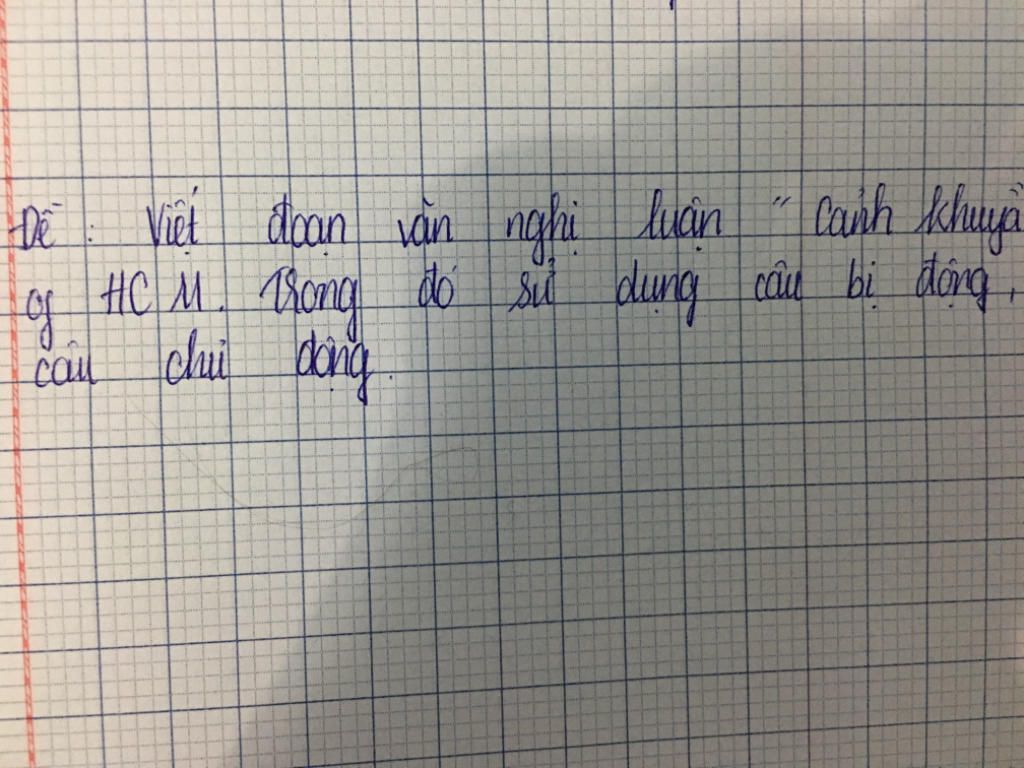 Đề : Viết đoạn văn nghị luận " Cảnh khuya"
of HCM. Trong đó sử dụng câu bị động,
câu chủ động.